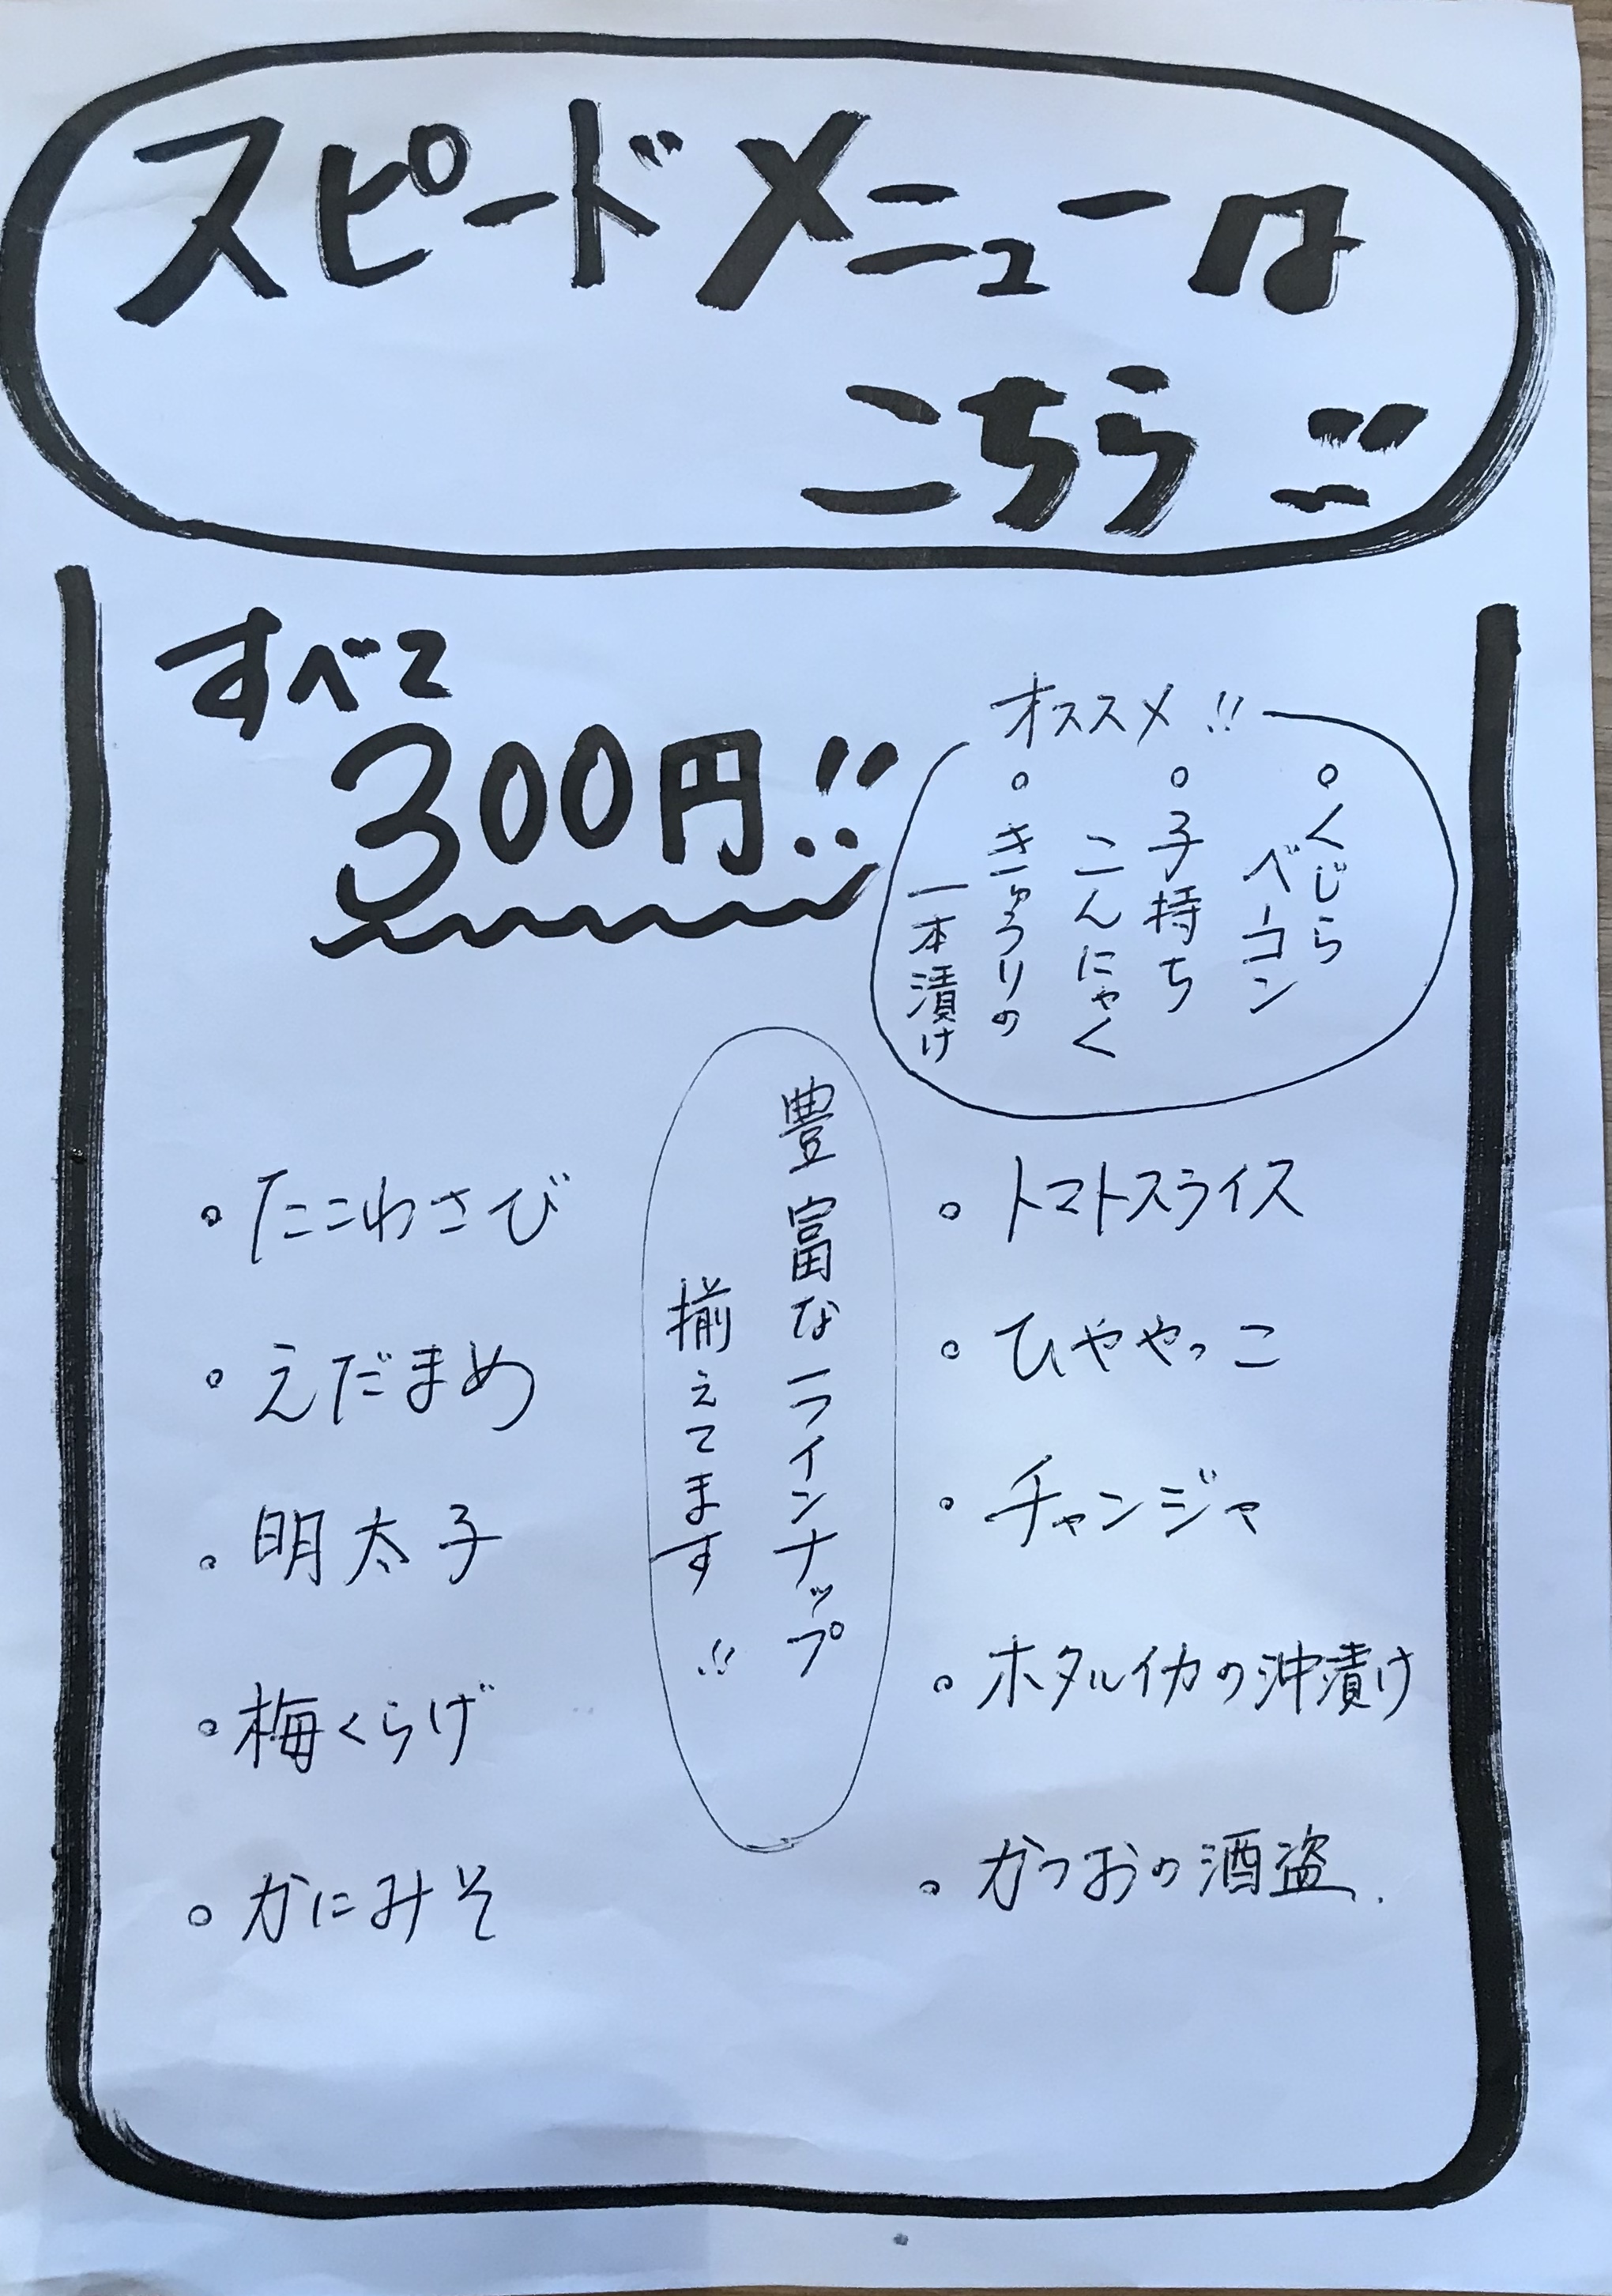 スピードメニューは
こちら!!
すべて
300円!!
オススメ!!
。くじら
ベーコン
。子持ち
こんにゃく
。きゅうりの
一本漬け
豊富なラインナップ
揃えてます!!
。たこわさび
。えだまめ
。明太子
。梅くらげ
。かにみそ
。トマトスライス
。ひややっこ
。チャンジャ
。ホタルイカの沖漬け
。かつおの酒盗.